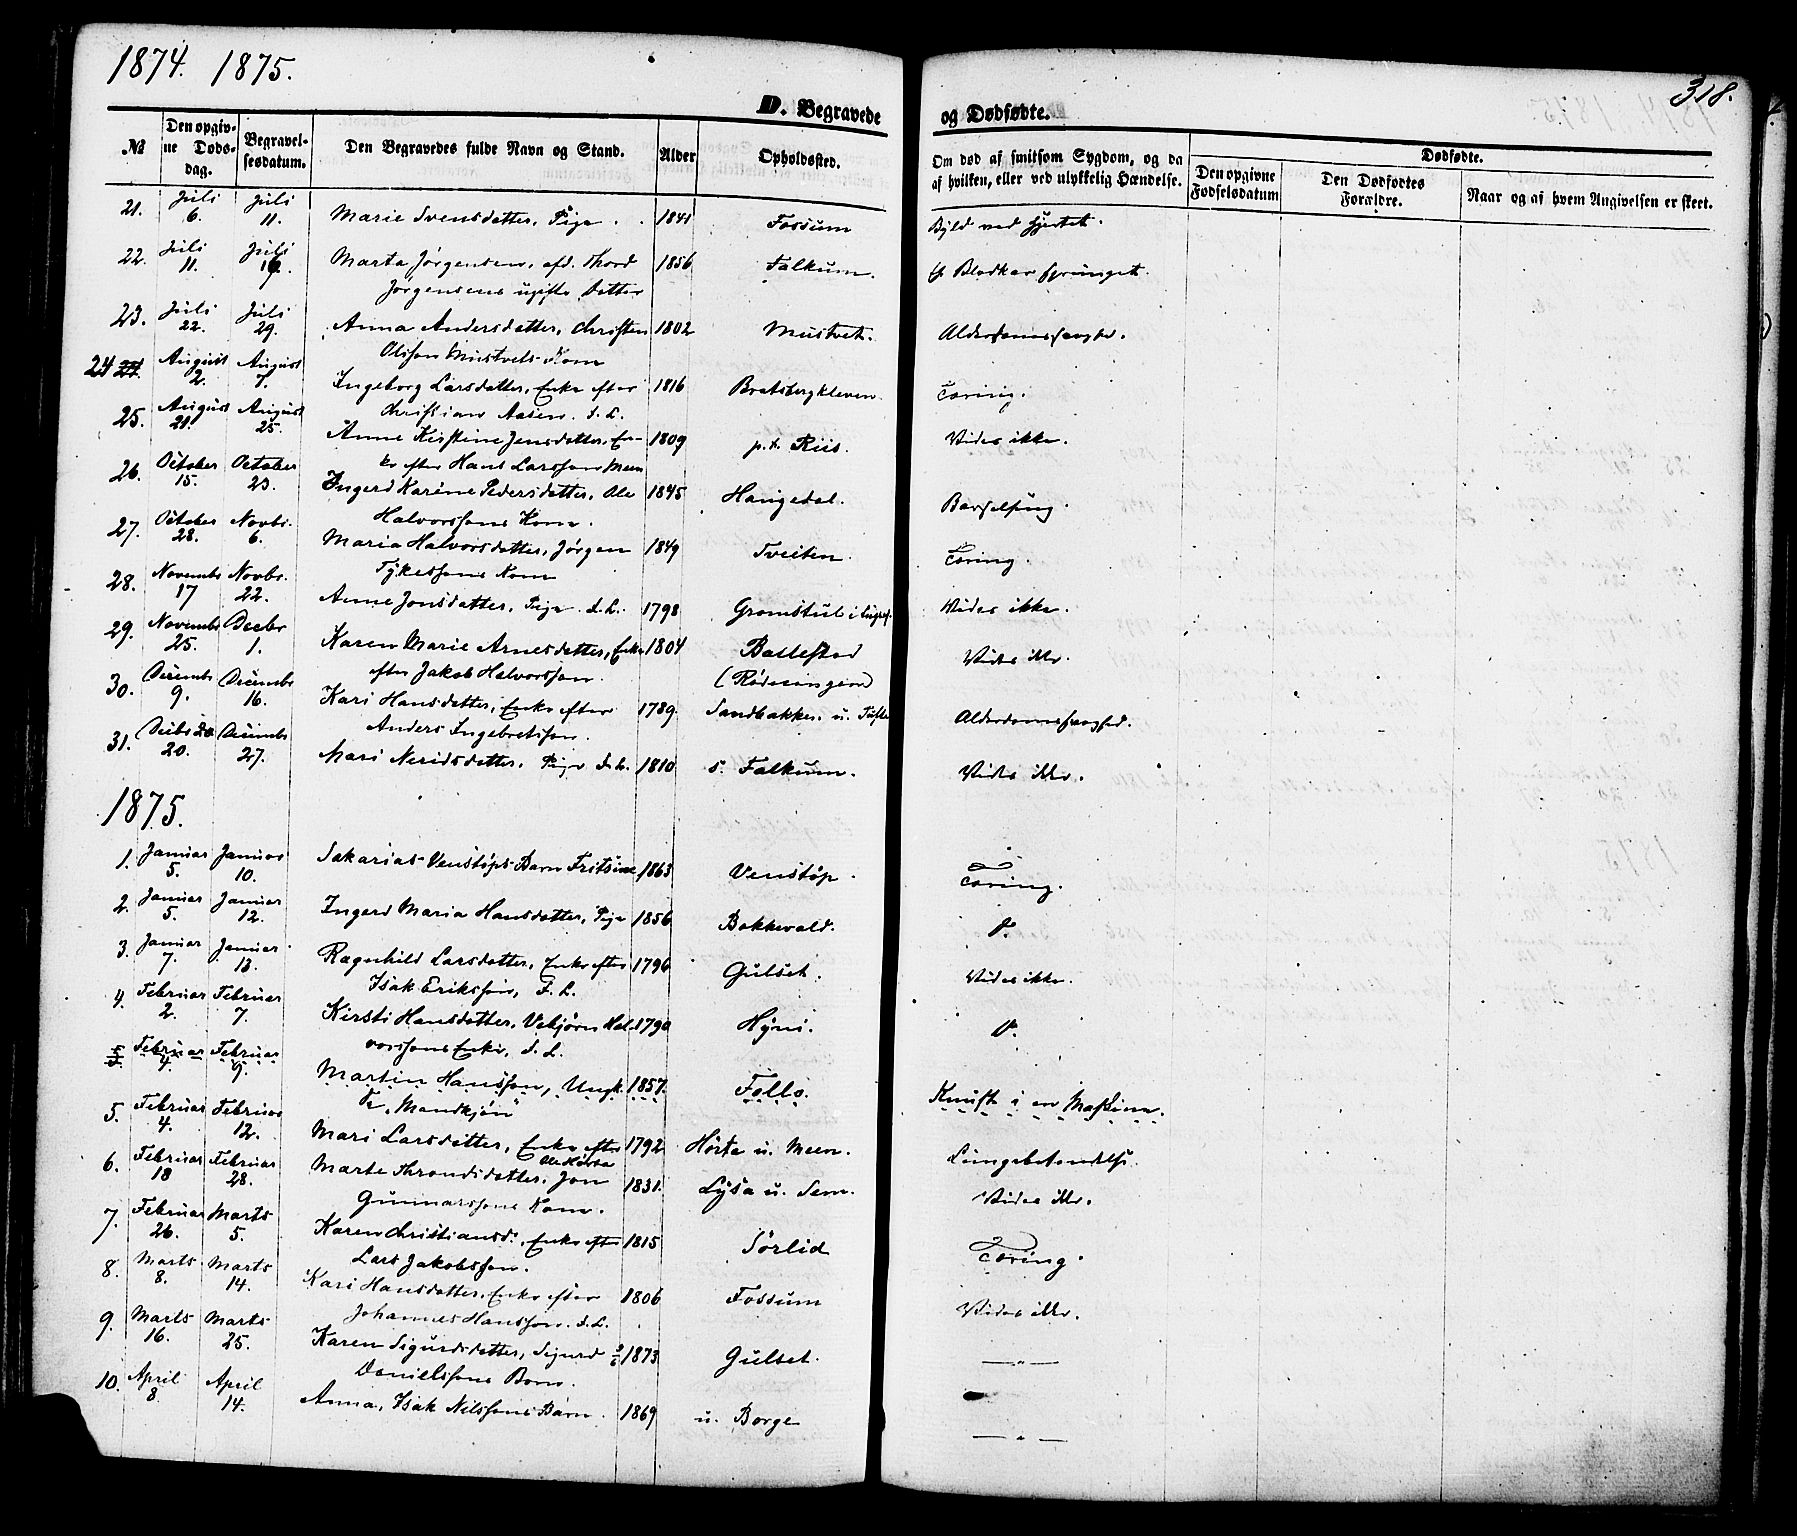 1874. 1875.
318.
D. Begravede og Dødfødte.
№ Den opgivne Døds-dag. Begravelsesdatum. Den Begravedes fulde Navn og Stand. Alder Opholdssted. Om død af smitsom Sygdom, og da af hvilken, eller ved ulykkelig Hændelse. Dødfødte. Den opgivne Fødselsdatum Den Dødfødtes Forældre. Naar og af hvem Angivelsen er skeet.
21. Juli 6. Juli 11. Marie Svensdatter, Pige. 1841 Fossum Byld ved Hjertet.
22. Juli 11. Juli Marta Jørgensen, afd. Thord 1856 Falkum. Blodkar sprunget.
Jørgensens ugifte Datter
23. Juli 22. Juli 29. Anna Andersdatter, Christen 1802 Mustvet. Alderdomssvaghed.
Olsson Mustvets Kone
24 24. August 2. August 7. Ingeborg Larsdatter, Enke efter 1816 Bratsbergkleven. Tæring.
Christian Aasen. F.L.
25. August 21. August 25. Anne Kirstine Jensdatter, En- 1809 p.t. Riis. Vides ikke.
ke efter Hans Larsson Meen
26. October 15. October 23. Ingerd Karine Pedersdatter, Ole 1845 Hangedal. Barselseng.
Halvorssons Kone.
27. October 28. Novbr. 6. Maria Halvorsdatter, Jørgen 1849 Tveiten. Tæring.
Tykessons Kone
28. Novembr 17 Novbr. 22. Anne Jonsdatter, Pige. F.L. 1798 Gromstul i Vides ikke.
29. Novembr 25. Decbr 1. Karen Marie Arnesdatter, Enke 1804 Ballestad Vides ikke.
efter Jakob Halvorsson. (Rødesingen)
30. Decembr 9. Decembr 16. Kari Hansdatter, Enke efter 1789. Sandbakken u. Tufte Alderdomssvaghed.
Anders Ingebretsson.
31. Decbr 20 20. Decembr 27. Mari Neridsdatter. Pige F.L. 1810 s. Falkum. Vides ikke.
1875.
1. Januar 5. Januar 10. Sakarias Venstøps Barn Fritsine 1863 Venstøp. Tæring.
2. Januar 5. Januar 12. Ingerd Maria Hansdatter, Pige 1856 Bakkevold.
3. Januar 7. Januar 13. Ragnhild Larsdatter, Enke efter 1796 Gulset. Vides ikke.
Isak Eriksson, F.L.
4. Februar 2. Februar 7. Kirsti Hansdatter, Vebjørn Hal- 1790 Hyni.
vorssons Enke, F.L.
5. Februar 4. Februar 9. Martin Hansson, Ungk. 1857. Follo. Knust i en Maskine.
Fr. „Mandkjøn"
5. Februar 4. Februar 12. Mari Larsdatter, Enke efter 1792 Hørta u. Meen. Lungebetændelse.
Ole Hørta
6. Februar 18 Februar 28. Marte Throndsdatter, Jon 1831. Lysa u. Sem. Vides ikke.
Gunnarssons Kone.
7. Februar 26. Marts 5. Karen Christiansd., Enke efter 1815 Sørlid Tæring.
Lars Jakobsson.
8. Marts 8. Marts 14. Kari Hansdatter, Enke efter 1806 Fossum Vides ikke.
Johannes Hansson. F.L.
9. Marts 16. Marts 25. Karen Sigurdsdatter, Sigurd 1873 Gulset. — „ —
Danielssons Barn.
10. April 8. April 14. Anna, Isak Nilssons Barn. 1869 u. Borge — „ —